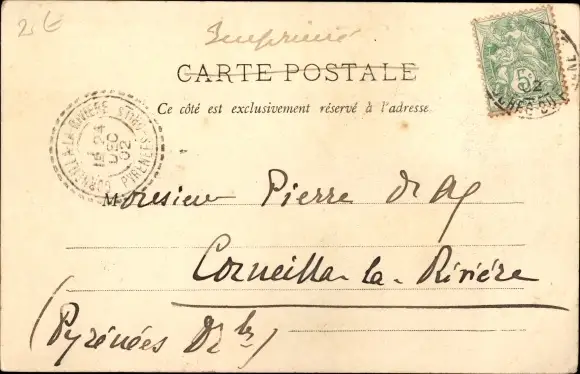 2 €
Imprimé
CARTE POSTALE
Ce côté est exclusivement réservé à l'adresse
5c
02
CORNEILLA-LA-RIVIERE
PYRENEES
24
DEC
02
Monsieur Pierre
Corneilla-la-Rivière
(Pyrénées Or les)